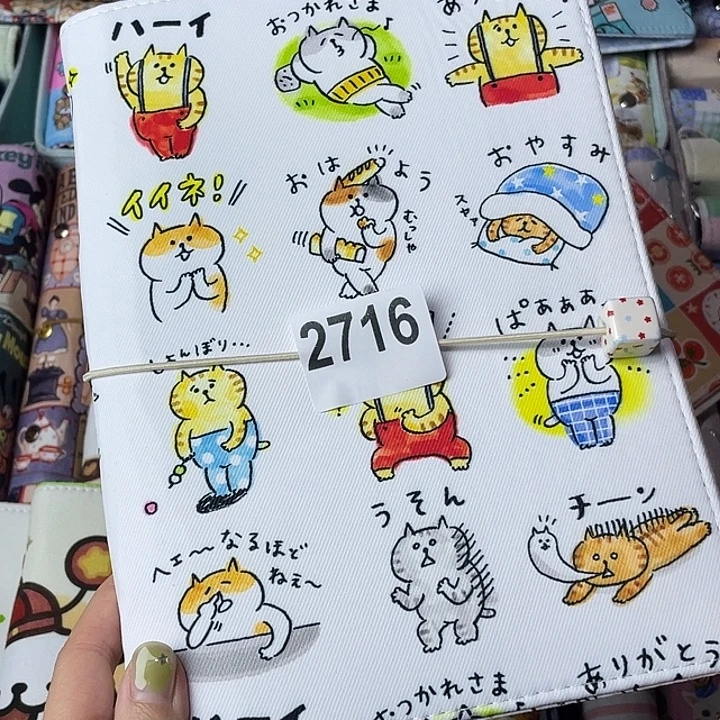 ハーイ
おつかれさま♪
イイネ!
おはよう
むっしゃ
おやすみ
スヤァ
2716
しょんぼり…
ぱぁぁぁ
うそん
チーン
へェ〜なるほど
ねぇ〜
おつかれさま
ありがとう